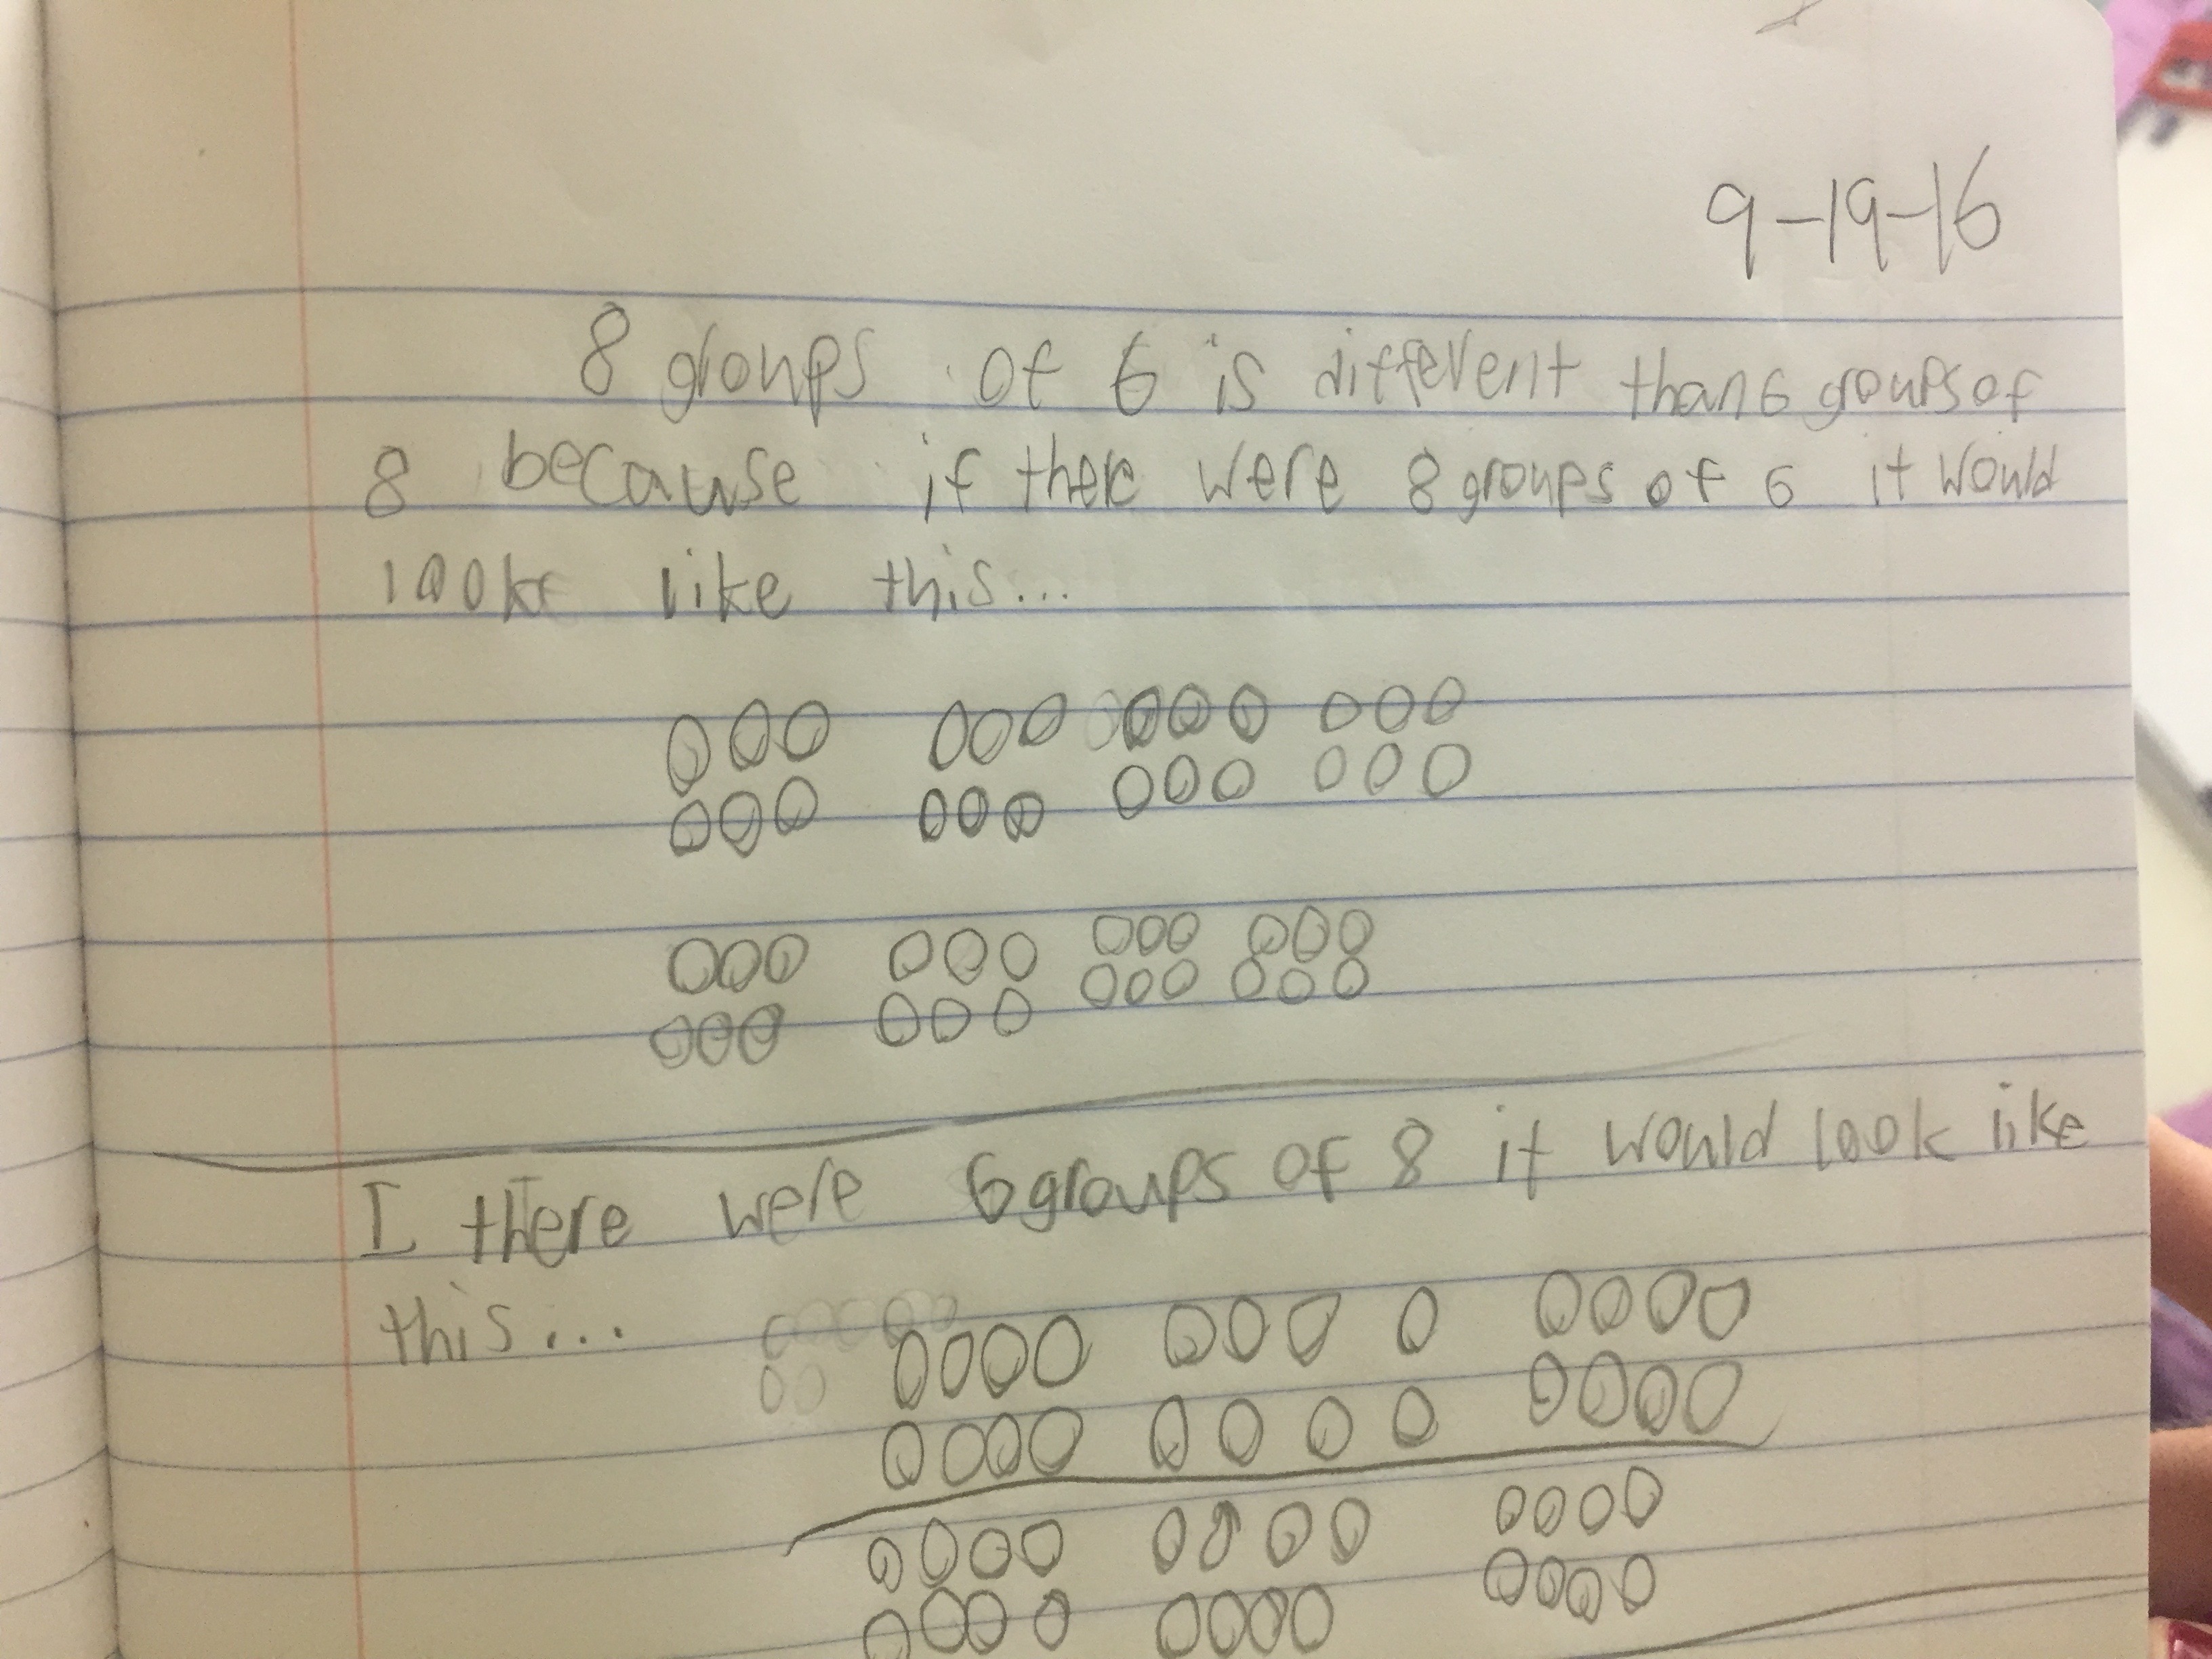 9-19-16
8 groups of 6 is different than 6 groups of
8 because if there were 8 groups of 6 it would
look like this...
I there were 6 groups of 8 it would look like
this...